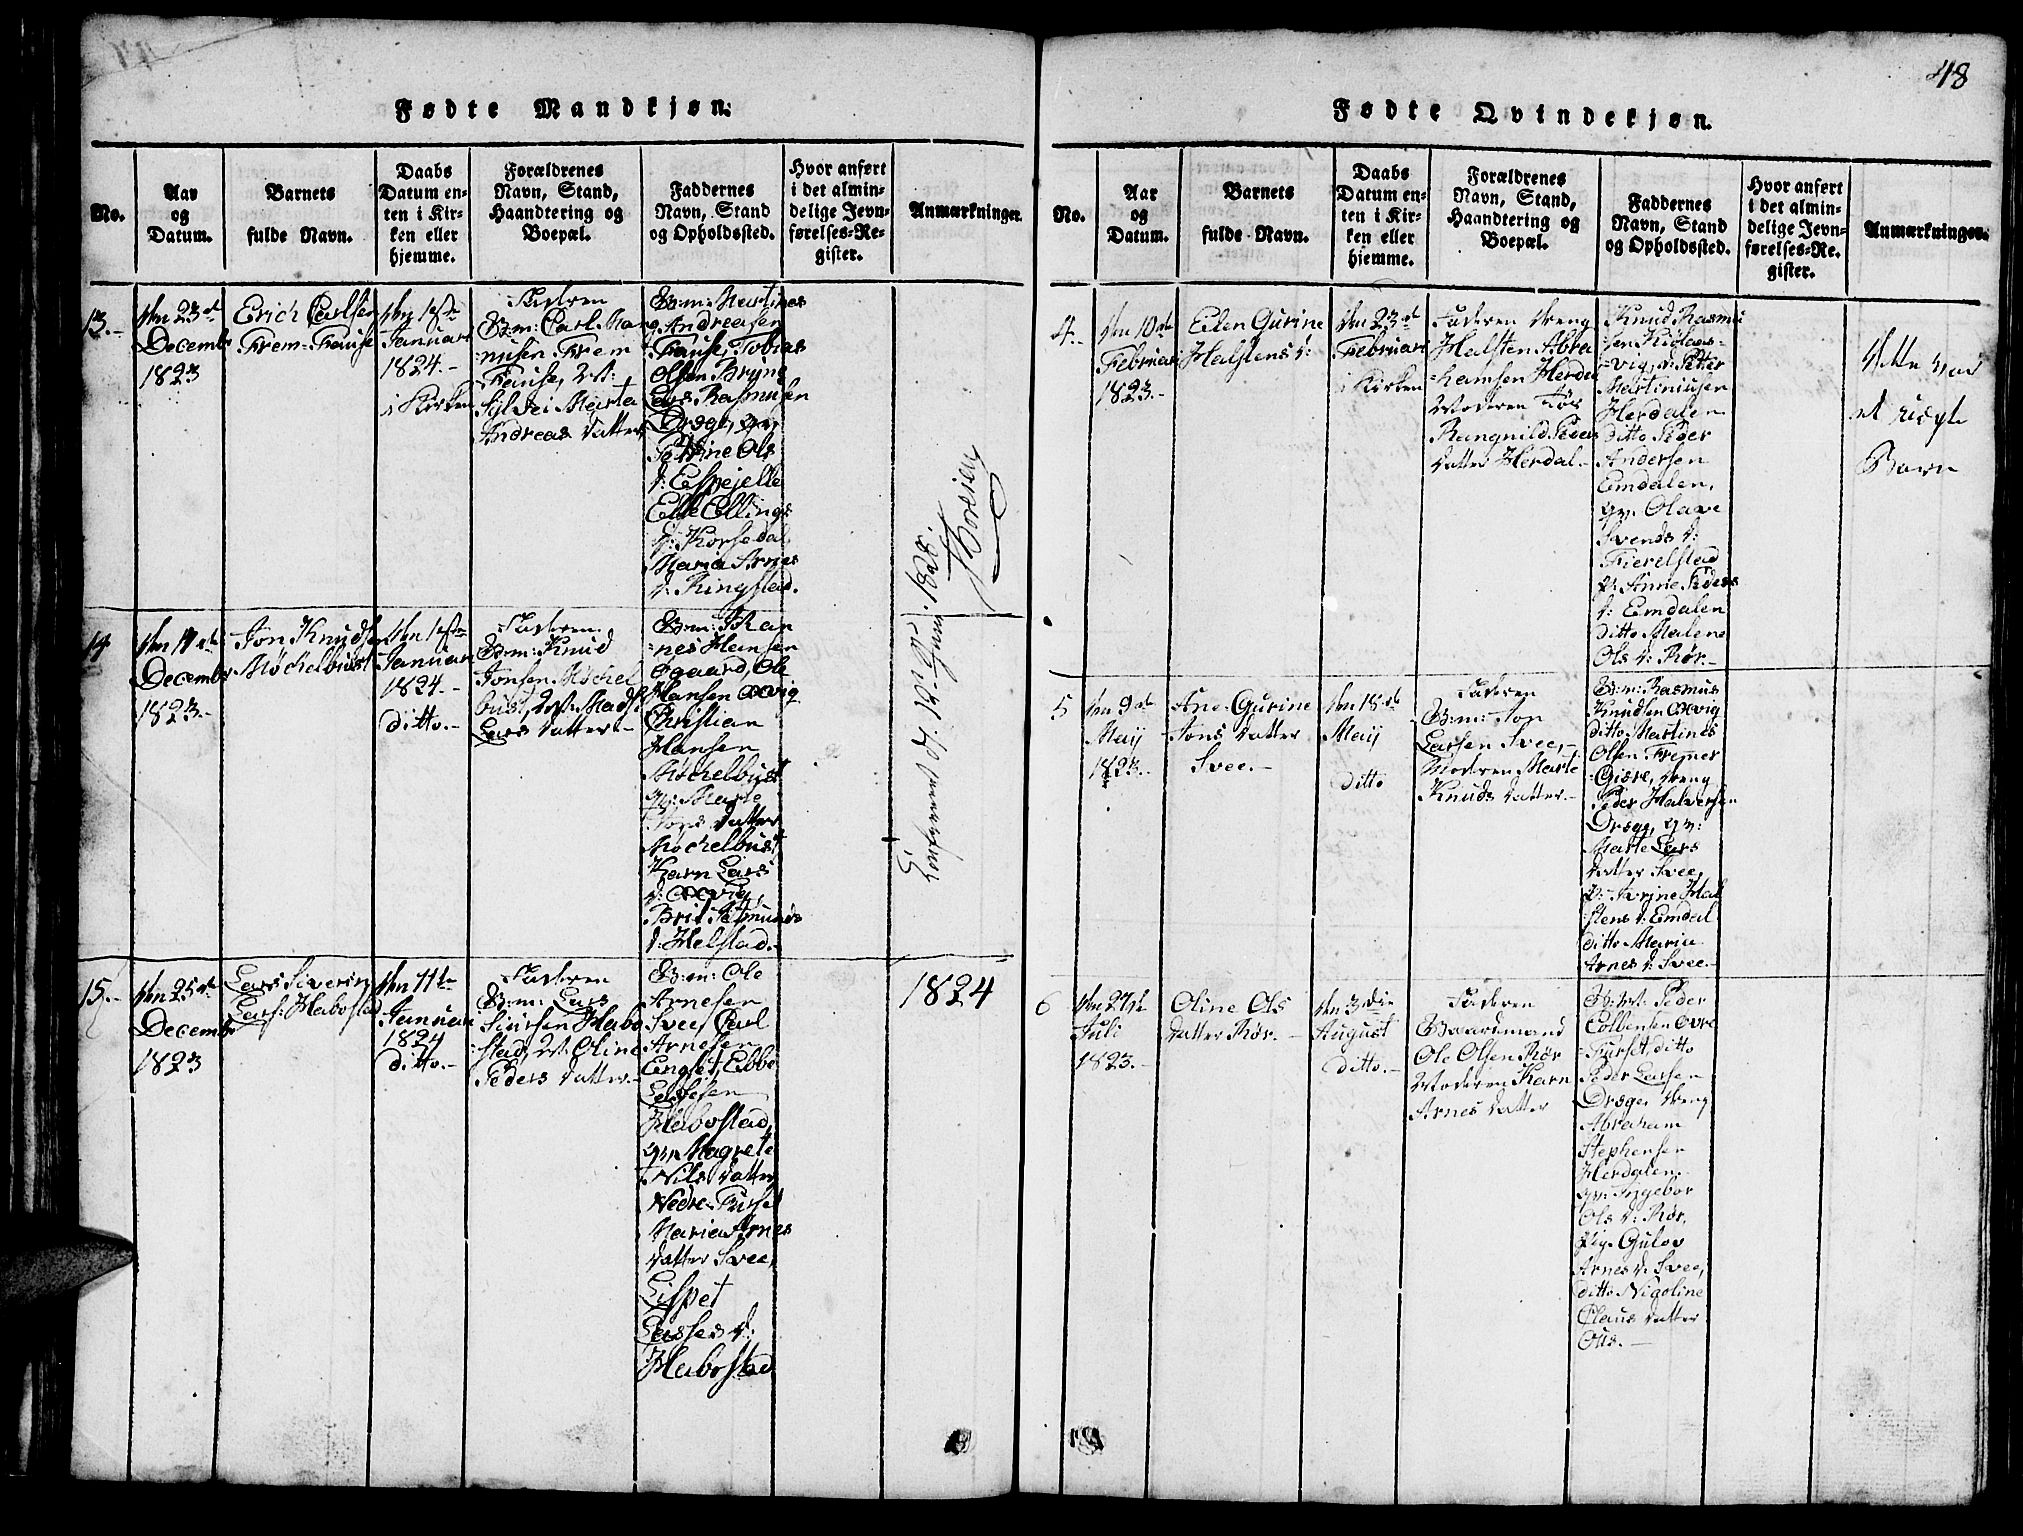 48
Fødte Mandkjøn.
No.
Aar
og
Datum.
Barnets
fulde Navn.
Daabs
Datum en-
ten i Kir-
ken eller
hjemme.
Forældrenes
Navn, Stand,
Haandtering og
Boepæl.
Faddernes
Navn, Stand
og Opholdssted.
Hvor anført
i det almin-
delige Jevn-
førelses-Re-
gister.
Anmærkninger.
13.-
den 23de
Decembr
1823
Erich Carlsen
Frem-Frause
den 1ste
Januari
1824.-
i Kirken
Faderen
Bm: Carl Mag
nusen Frem
Frause, M:
Marta
Andreas datter
Bm: Martines
Andreasen
Frause, Tobias
Olsen Bryne
Lars Rasmusen
Dræge, qv:
Petrine Ols
d: Espejelle
Else Ellings
d: Korsedal
Maria Arnes
d: Ringstad.
14
Decembr
1823.-
Jon Knudsen
Møchelbust
den 1ste
Januari
1824.-
ditto.-
Faderen
Bm: Knud
Jonsen Møchel
bust, M:
Lars datter.-
nes Hansen
Øgaard, Ole
Hansen Øxvig
Christian
Hansen
Møchelbust
qv: Marte
Jons datter
Møchelbust
Karn Lars
d: Øxvig
Brit
d: Helstad.-
15.-
den 25de
Decembr
1823
Lars Siverin
Lars: Habostad
den 11te
Januari
1824
ditto.-
Faderen
Bm: Lars
Siursen Habo
stad, M: Oline
Peders datter.-
Bm: Ole
Arnesen
Svee, Carl
Arnesen
Engset, Ebbe
Habostad,
qv: Magrete
Nils datter
Nedre-Furset
Maria Arnes
datter Svee,
Lispet
Lasses d:
Habostad
1828.
1824
Fødte Qvindekjøn.
No.
Aar
og
Datum.
Barnets
fulde Navn.
Daabs
Datum en-
ten i Kir-
ken eller
hjemme.
Forældrenes
Navn, Stand,
Haandtering og
Boepæl.
Faddernes
Navn, Stand
og Opholdssted.
Hvor anført
i det almin-
delige Jevn-
førelses-Re-
gister.
Anmærkninger.
4.-
den 10de
Februari
1823.-
Elen Gurine
Halstens d:
den 23de
Februari
i Kirken
Faderen dreng
Halsten Abra
=hamsen Herdal
Moderen Tøs
Rangnild Peders
datter Herdal.-
Knud Rasmu
sen Kiølaas-
=vig, d: Peter
Martiniusen
Herdalen
ditto Peder
Andersen
Emdalen,
qv: Olave
Svends d:
Fierelstad
p: Anne Peders
d: Emdalen
ditto Malene
Ols d: Rør.-
dette var
et uægte
Barn
5
den 9de
Maij
1823.-
Ane-Gurine
Jons datter
Svee.-
den 18de
Maij
ditto
Faderen
Bm: Jon
Larsen Svee,-
Moderen Marte
Knuds datter.-
Bm: Rasmus
Knudsen Øxvig
ditto Martines
Olsen Fremer
Giære, dreng
Peder Halversen
Dræge, qv:
Marte Lars
datter Svee,
p: Hal
stens d: Emdal
ditto Maria
Arnes d: Svee.-
6
den 27de
Juli
1823.-
Oline Ols
datter Rør.-
den 3die
August
ditto.-
Faderen
Baardmand
Ole Olsen Rør
Moderen Karn
Arnes datter
Peder
Colbensen Øvre
=Furset, ditto
Peder Larsen
Dræge, dreng
Abraham
Stephensen
Herdalen.
qv: Ingebor
Ols d: Rør,
pig. Gulov
Arnes d: Svee,
ditto Nicoline
Claus datter
Ous.-